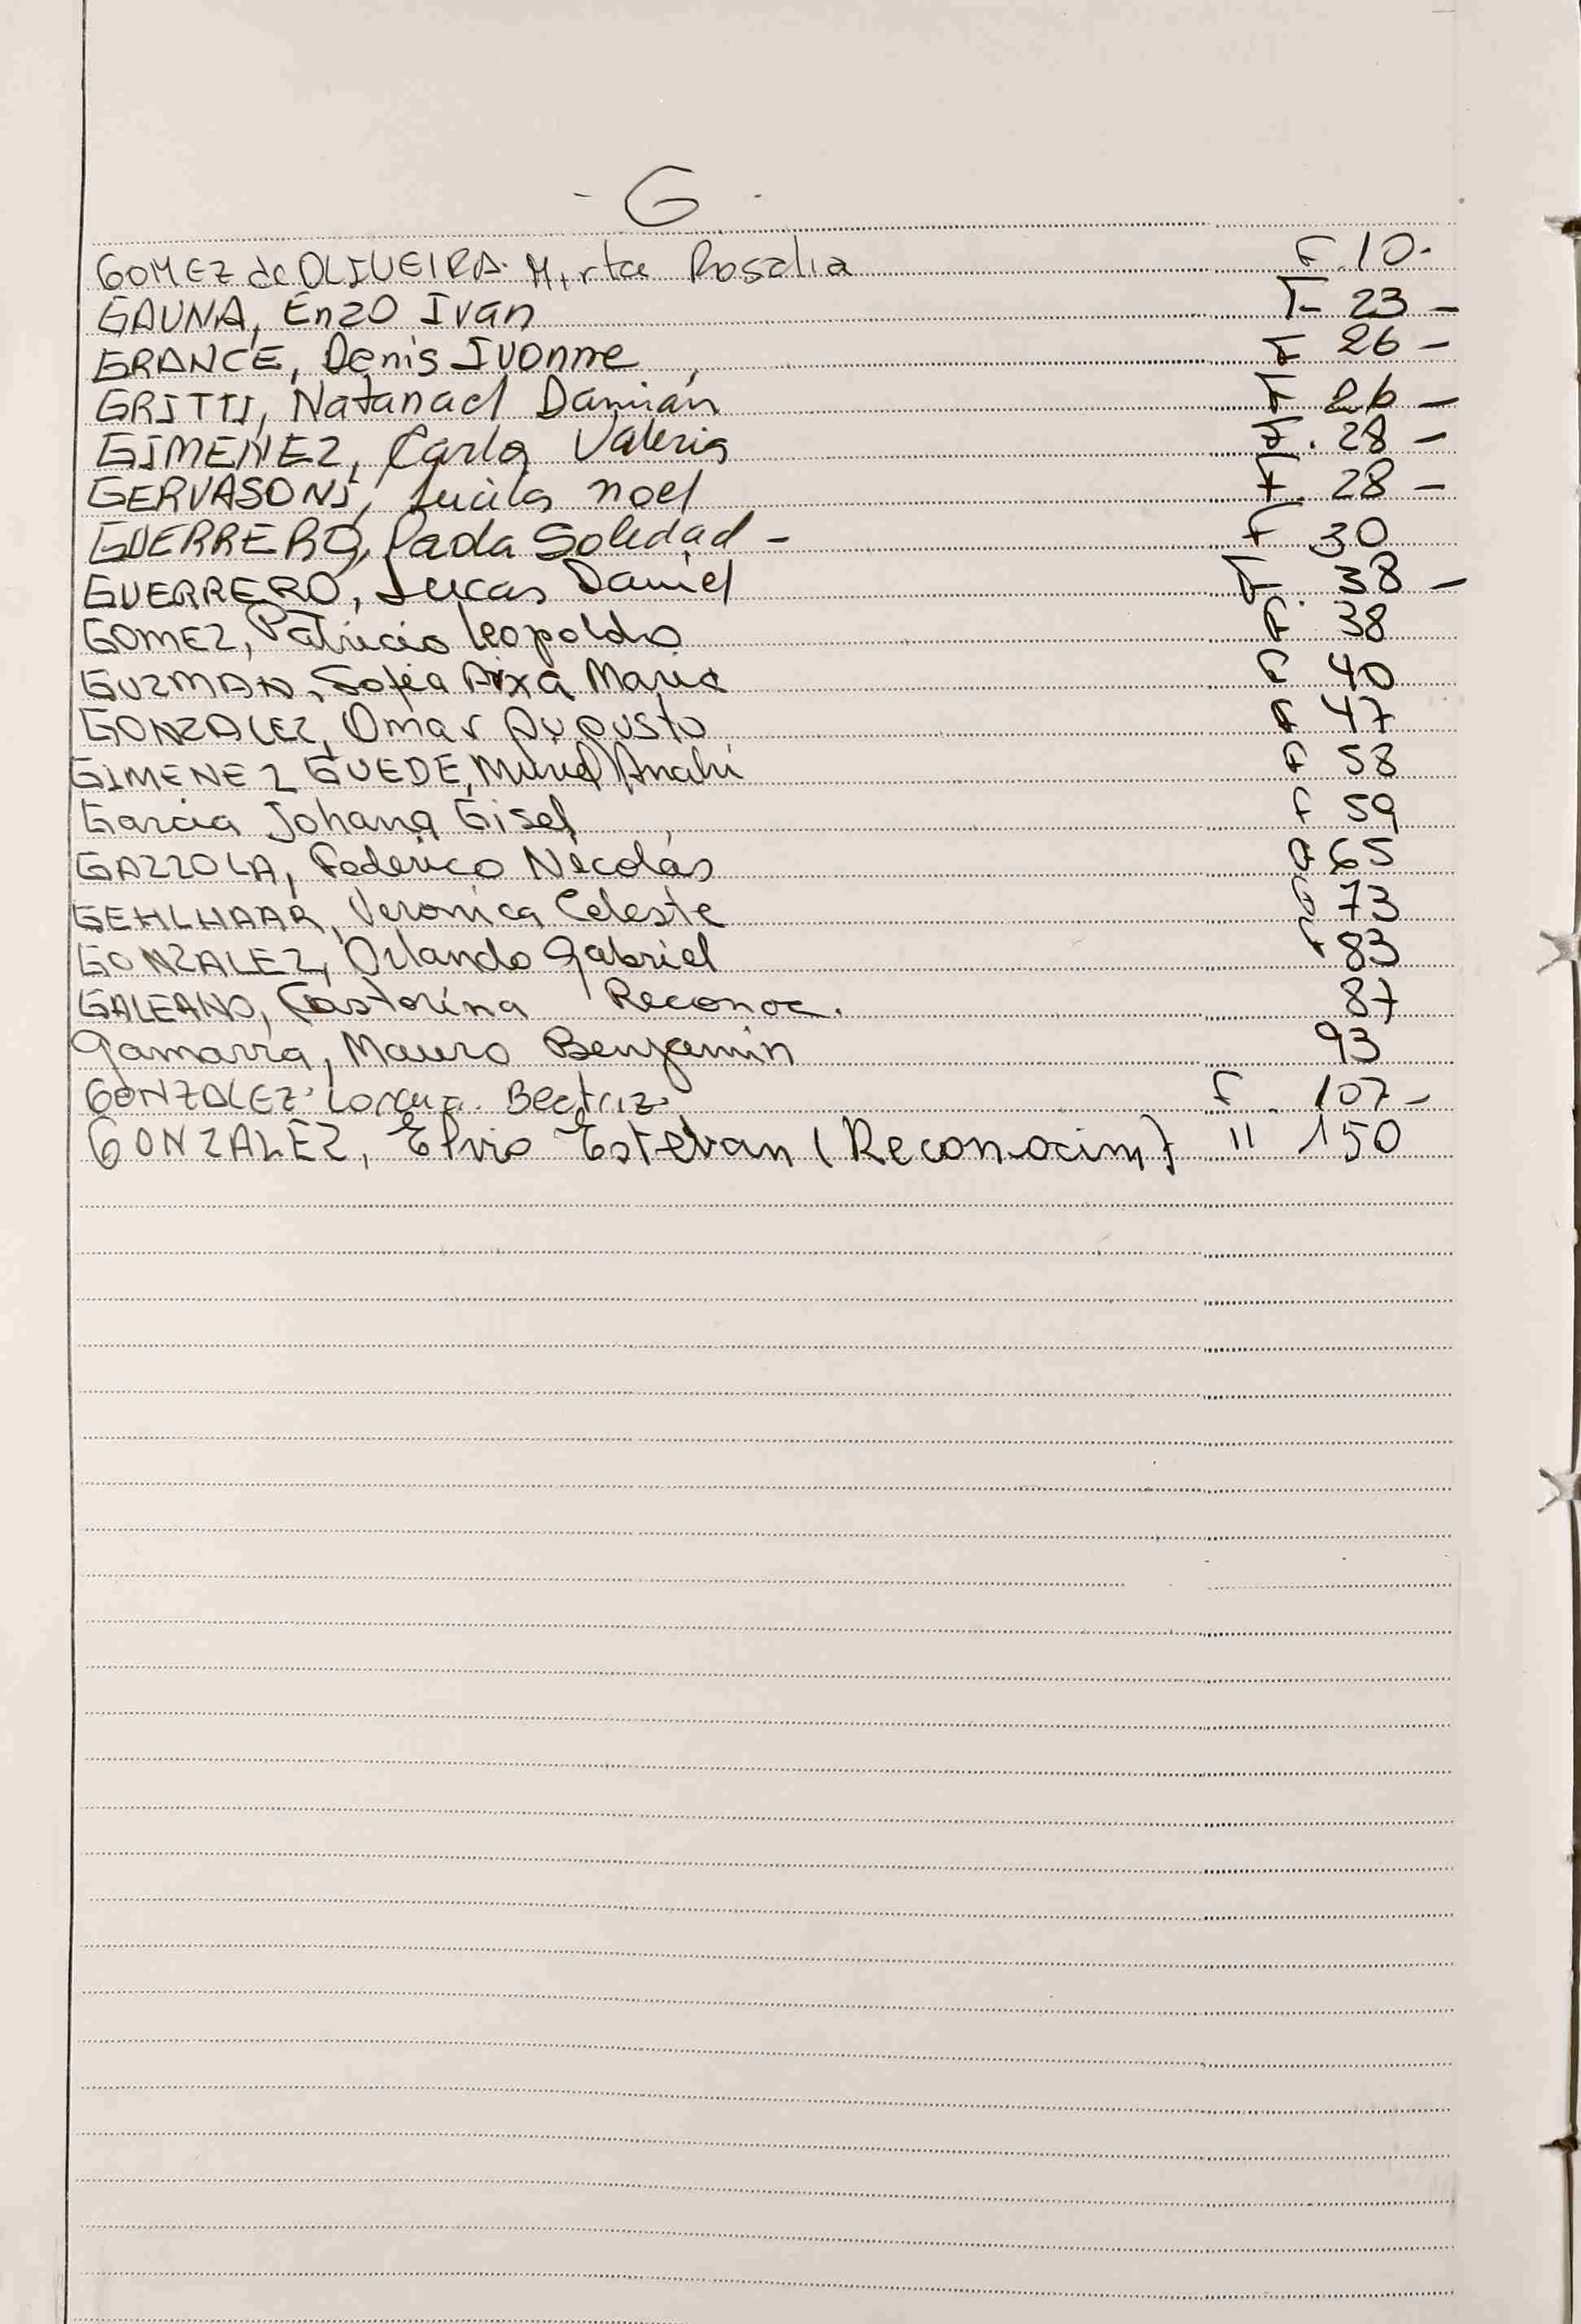 - G -
GOMEZ de OLIVEIRA. Mirta Rosalia F. 10.
GAUNA, Enzo Ivan F- 23 -
GRANCE, Denis Ivonne F 26 -
GRITTI, Natanael Damián F 26 -
GIMENEZ, Carla Valeria F. 28 -
GERVASONI, Lucila noel F. 28 -
GUERRERO, Paola Soledad - F 30
GUERRERO, Lucas Daniel F. 38 -
GOMEZ, Patricio Leopoldo F 38
GUZMAN, Sofia Aixa Maria F 40
GONZALEZ, Omar Augusto F 47
GIMENEZ GUEDE, Muriel Anahi F 58
Garcia Johana Gisel f 59
GAZZOLA, Federico Nicolás F 65
GEHLHAAR, Veronica Celeste F 73
GONZALEZ, Orlando Gabriel F 83
GALEANO, Castorina Reconoc. 87
Gamarra, Mauro Benjamin 93
GONZALEZ. Lorena. Beatriz. F. 107-
GONZALEZ, Elvio Estevan (Reconocim) " 150